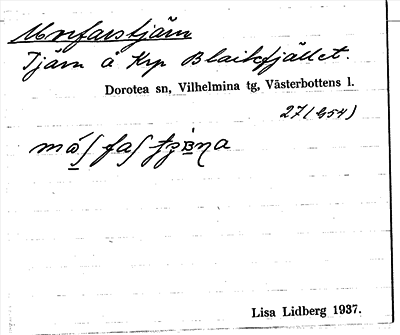 Morfarstjärn
Tjärn å Krp Blaikfjället.
Dorotea sn, Vilhelmina tg, Västerbottens l.
27 (654)
Lisa Lidberg 1937.